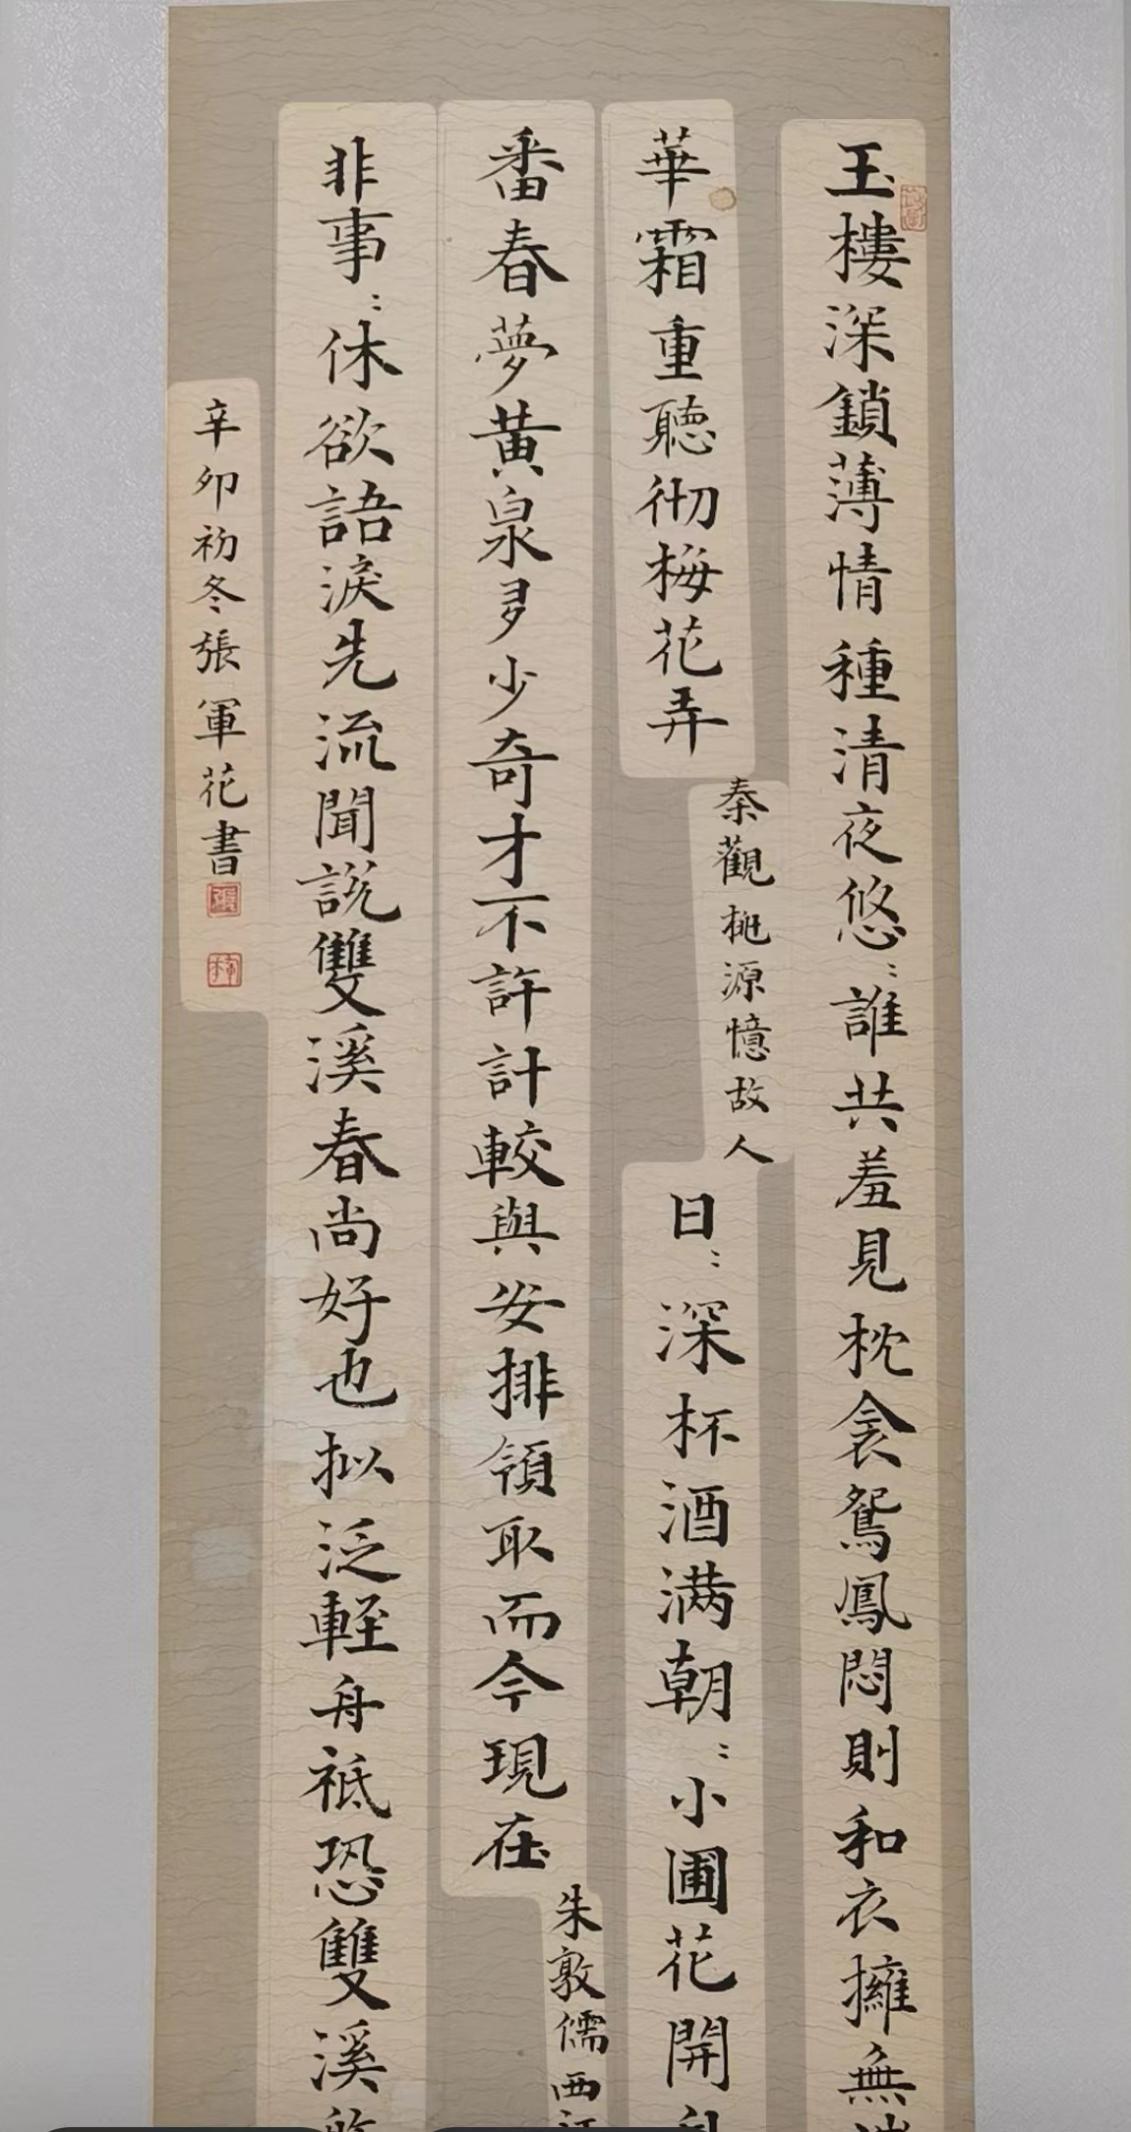 玉樓深鎖薄情種清夜悠〻誰共羞見枕衾鴛鳳悶則和衣擁無
華霜重聽徹梅花弄
秦觀桃源憶故人
日〻深杯酒滿朝〻小圃花開
番春夢黃泉多少奇才不許計較與安排領取而今現在
朱敦儒西江
非事〻休欲語淚先流聞說雙溪春尚好也拟泛輕舟祗恐雙溪
辛卯初冬張軍花書